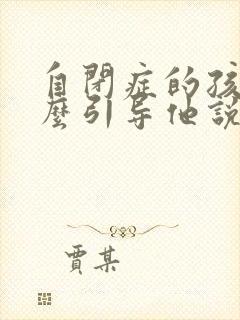 自閉症的孩
麼引导他說
賈某